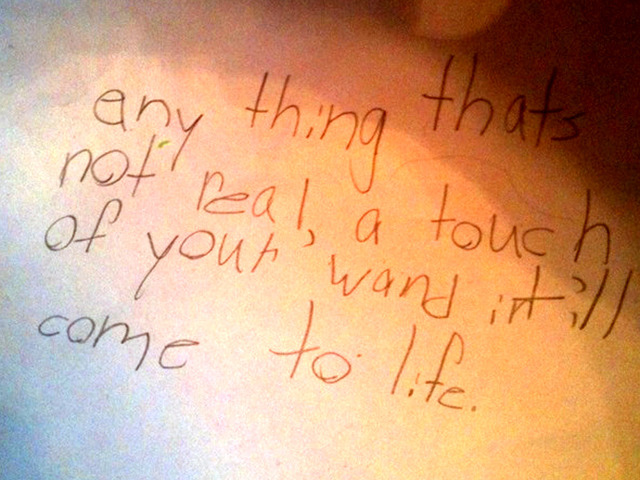 any thing thats
not real, a touch
of your wand it'ill
come to life.